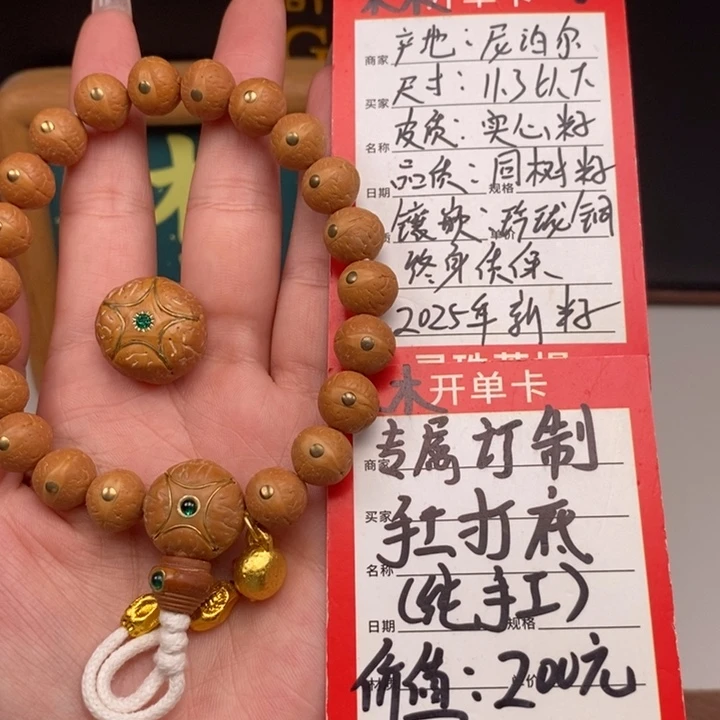 开单卡
商家 产地：尼泊尔
买家 尺寸：11.3以下
名称 皮质：实心籽
日期 品质：同树籽 规格
镶嵌：玲珑/铜 单价
终身质保
2025年新籽
木 开单卡
商家 专属订制
买家 手工打底
名称 (纯手工)
日期 规格
价值：200元 单价